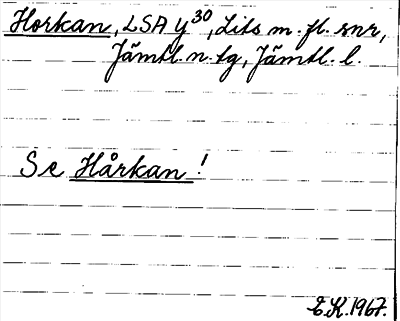 Horkan, LSA Y30, Lits m. fl. snr,
Jämtl. n. tg, Jämtl. l.
Se Hårkan!
E.K. 1967.